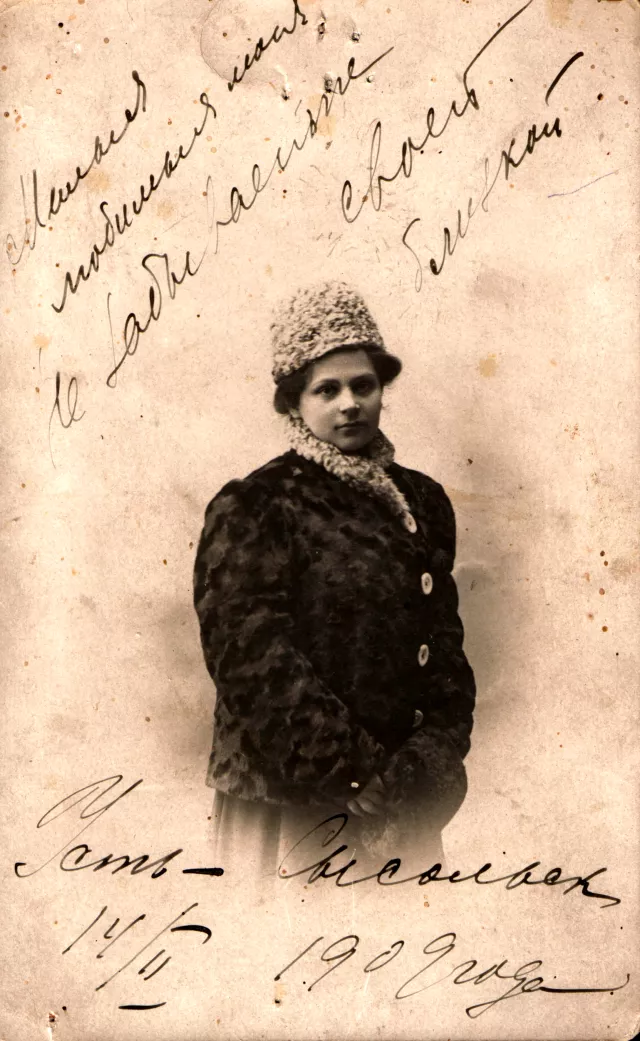 Милая
любимая моя,
не забывайте
своей
близкой
Усть-Сысольск
14/II 1909 года